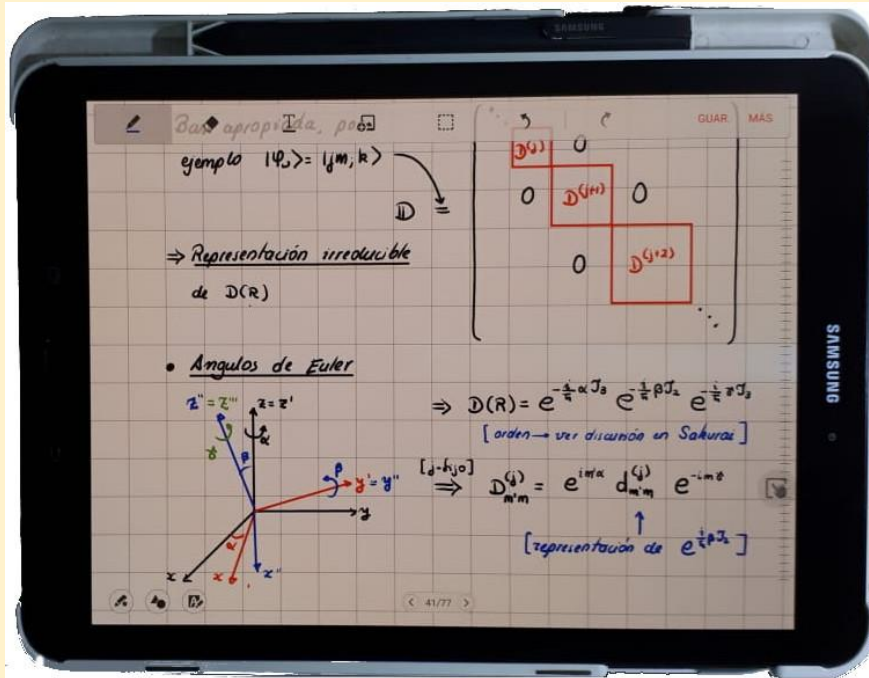 SAMSUNG
GUAR. MÁS
Base apropiada, por
ejemplo |φᵢ>= |jm; k>
𝔻 =
⋱
D⁽ʲ⁾ 0
0 D⁽ʲ⁺¹⁾ 0
0 D⁽ʲ⁺²⁾
⋱
⇒ Representación irreducible
de D(R)
• Angulos de Euler
z" = z"' z = z'
γ β α
β y' = y"
y
α
x x' x"
⇒ D(R) = e^{-i/ħ αJ₃} e^{-i/ħ βJ₂} e^{-i/ħ γJ₃}
[orden → ver discusión en Sakurai]
[j-fijo]
⇒ D⁽ʲ⁾ₘ'ₘ = e^{im'α} d⁽ʲ⁾ₘ'ₘ e^{-imγ}
↑
[representación de e^{i/ħ βJ₂}]
< 41/77 >
SAMSUNG